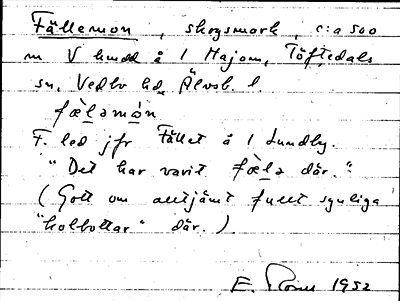 Fällemon, skogsmark, c:a 500
m V hmdd å 1 Hajom, Töftedals
sn, Vedbo hd, Älvsb. l.
fæ̀ləmón
F. led jfr Fället å 1 Lundby.
"Det har varit fæ̀lə där."
(Gott om alltjämt fullt synliga
"kolbottar" där.)
E. 1952